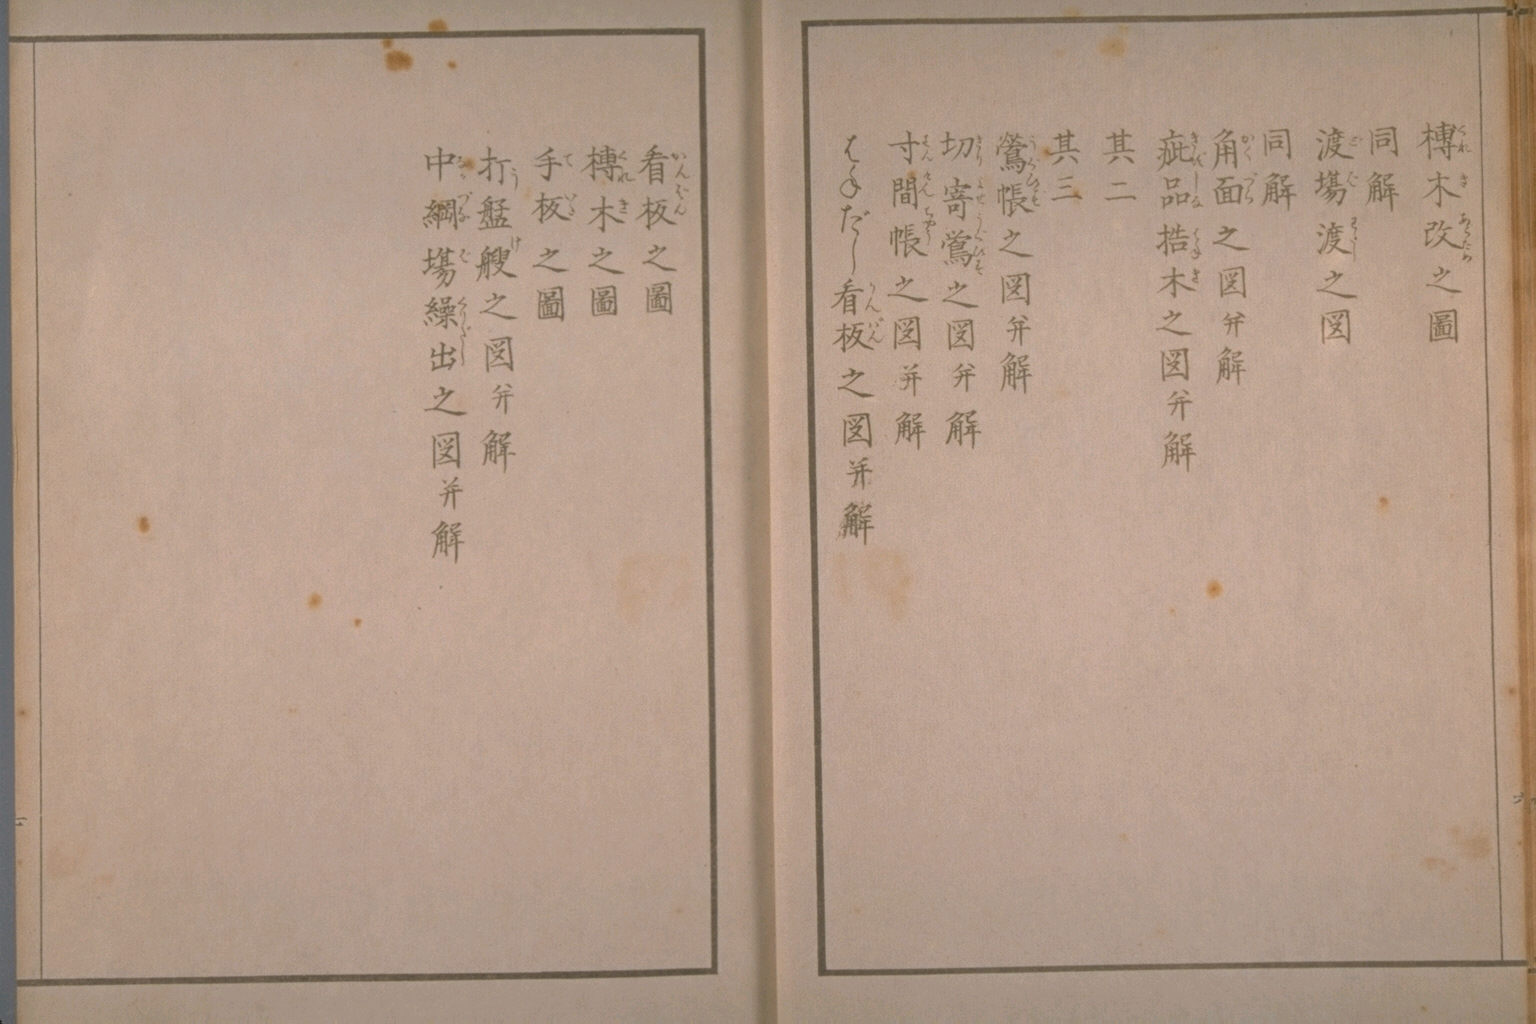 榑木改之圖
同解
渡塲渡之図
同解
角面之図并解
疵品捁木之図并解
其二
其三
鶯帳之図并解
切寄鶯之図并解
寸間帳之図并解
はねだし看板之図并解
看板之圖
榑木之圖
手板之圖
打艋艘之図并解
中綱塲繰出之図并解